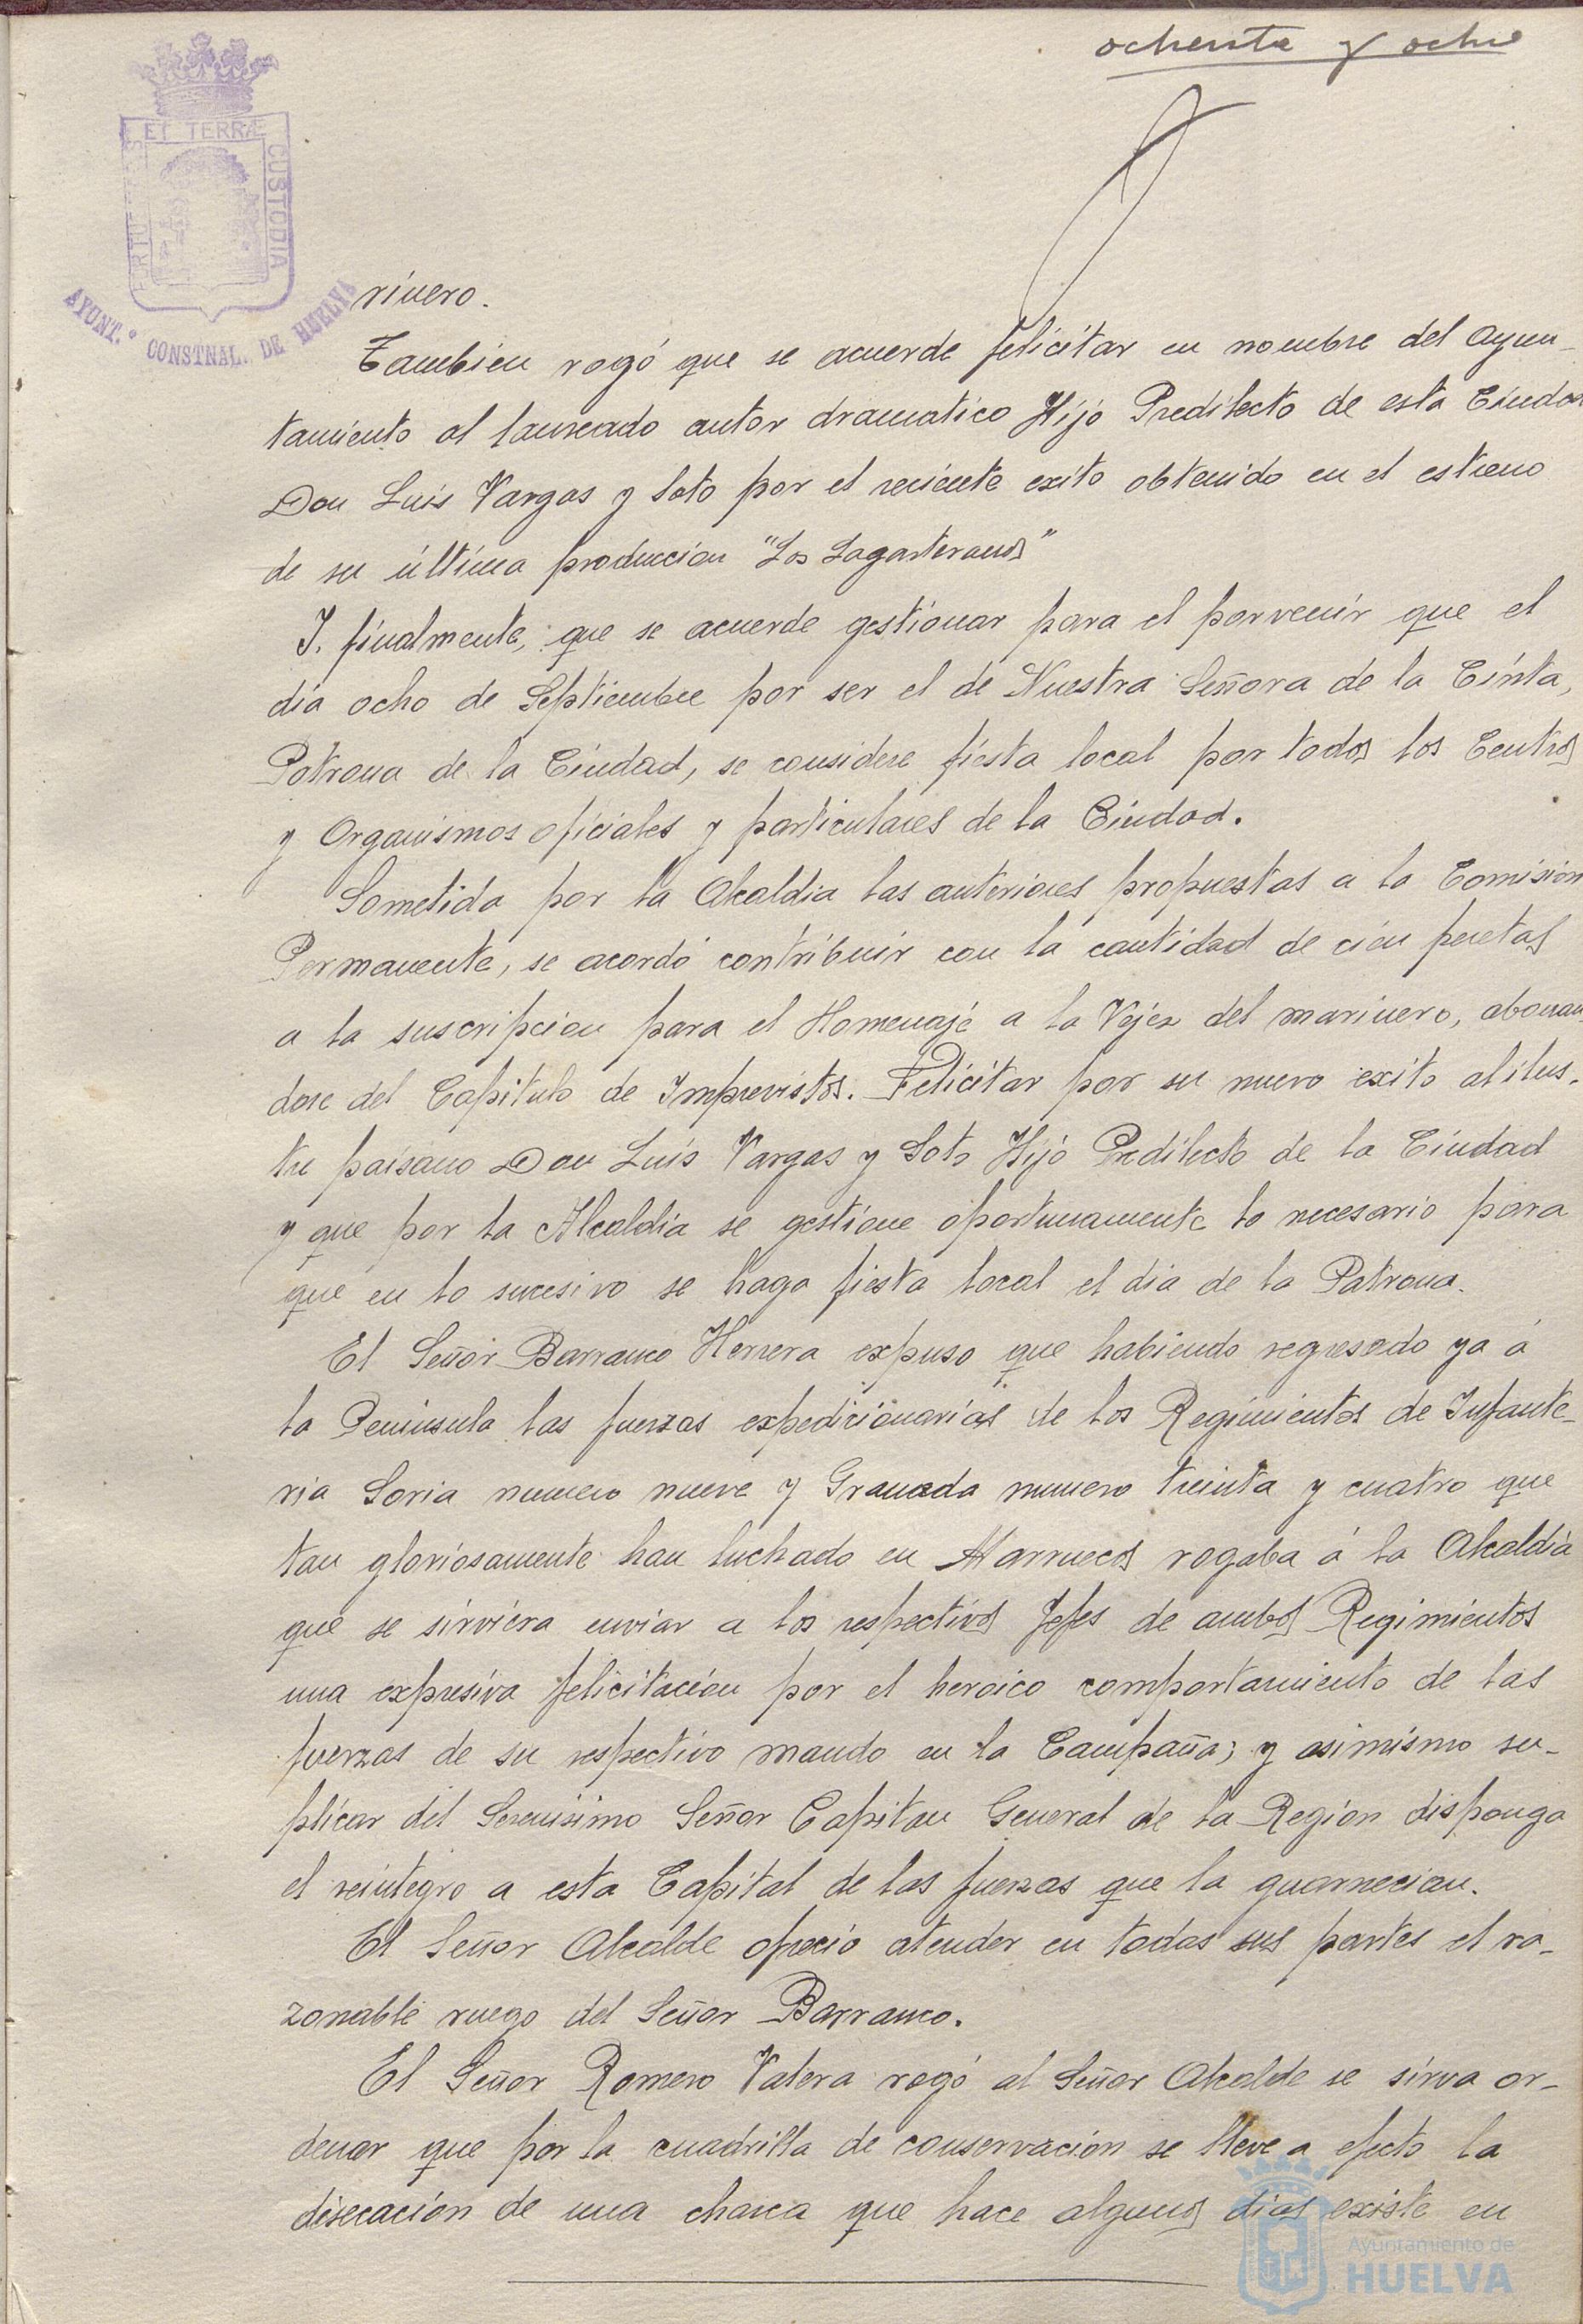 ochenta y ocho
ET TERRÆ
CUSTODIA
AYUNT.º CONSTNAL. DE HUELVA
rinero.
Tambien rogó que se acuerde felicitar en nombre del Ayun-
tamiento al laureado autor dramatico Hijo Predilecto de esta Ciudad
Don Luis Vargas y Soto por el reciente exito obtenido en el estreno
de su última produccion "Los Lagarteranos"
Y. finalmente, que se acuerde gestionar para el porvenir que el
dia ocho de Septiembre por ser el de Nuestra Señora de la Cinta,
Patrona de la Ciudad, se considere fiesta local por todos los Centros
y Organismos oficiales y particulares de la Ciudad.
Sometida por la Alcaldia las anteriores propuestas a la Comision
Permanente, se acordó contribuir con la cantidad de cien pesetas
a la suscripcion para el Homenaje a la Vejez del marinero, abonan-
dose del Capitulo de Imprevistos. Felicitar por su nuevo exito al ilus-
tre paisano Don Luis Vargas y Soto Hijo Predilecto de la Ciudad
y que por la Alcaldia se gestione oportunamente lo necesario para
que en lo sucesivo se haga fiesta local el dia de la Patrona.
El Señor Barranco Herrera expuso que habiendo regresado ya á
la Peninsula las fuerzas expedicionarias de los Regimientos de Infante-
ria Soria numero nueve y Granada numero treinta y cuatro que
tan gloriosamente han luchado en Marruecos rogaba á la Alcaldia
que se sirviera enviar a los respectivos Jefes de ambos Regimientos
una expresiva felicitacion por el heroico comportamiento de las
fuerzas de su respectivo mando en la Campaña; y asimismo su-
plicar del Serenisimo Señor Capitan General de la Region disponga
el reintegro a esta Capital de las fuerzas que la guarnecian.
El Señor Alcalde ofrecio atender en todas sus partes el ra-
zonable ruego del Señor Barranco.
El Señor Romero Valera rogó al Señor Alcalde se sirva or-
denar que por la cuadrilla de conservacion se lleve a efecto la
disecacion de una charca que hace algunos dias existe en
Ayuntamiento de
HUELVA